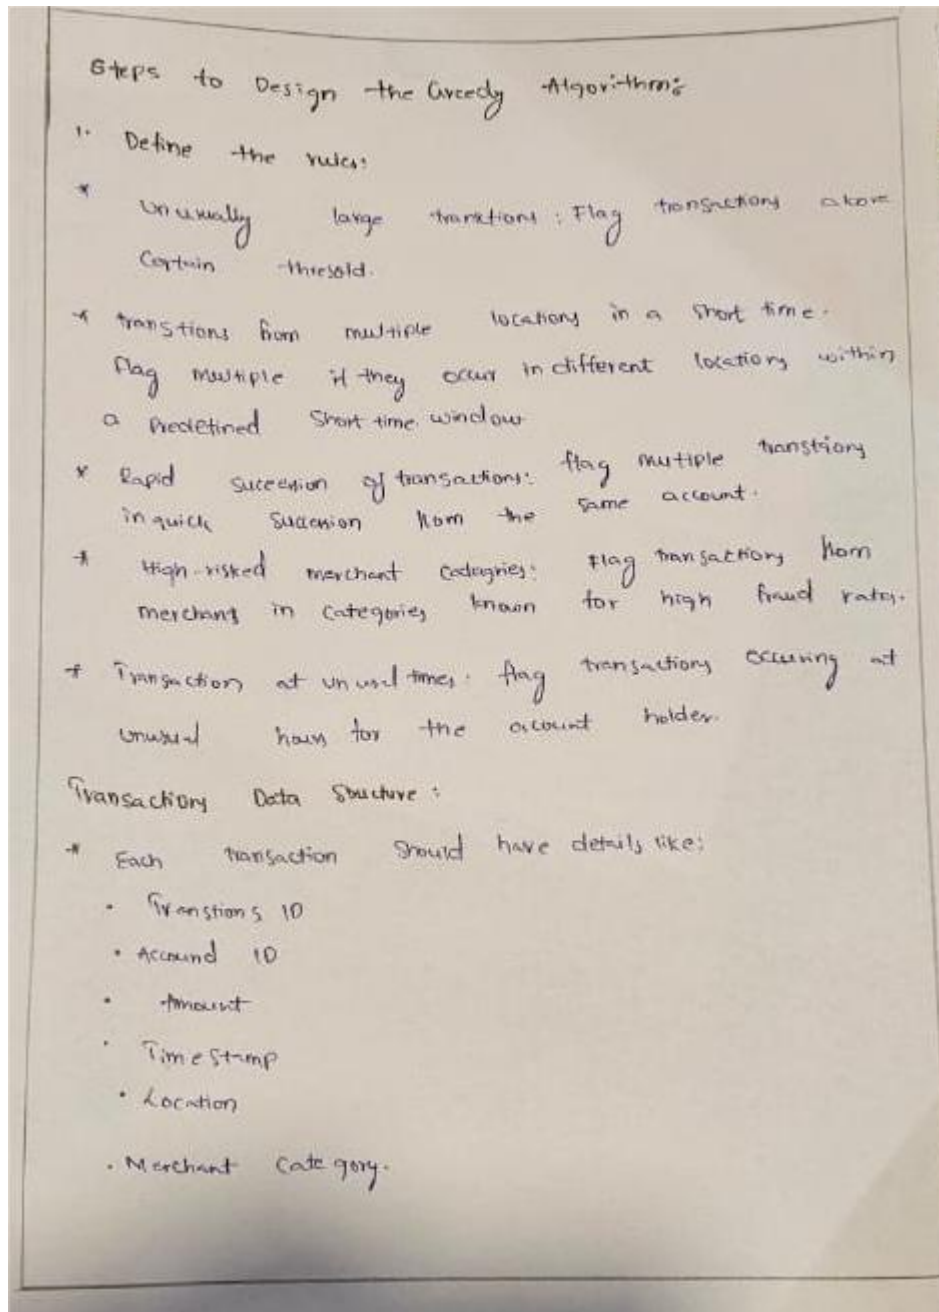 Steps to Design the Greedy Algorithm:
1. Define the rules:
* Unusually large tranctions : Flag transactions above
Certain thresold.
* transtions from multiple locations in a short time.
flag multiple if they occur in different locations within
a predefined short time window
* Rapid succession of transactions: flag mutiple transtions
in quick succession from the same account.
* High-risked merchant cadagries: flag transactions from
merchants in categories known for high fraud rates.
* Transactions at unusual times. flag transactions occuring at
unusual hours for the account holder.
Transactions Data Structure :
* Each transaction should have details like:
• Transtions ID
• Accound ID
• Amount
• Timestamp
• Location
• Merchant Category.